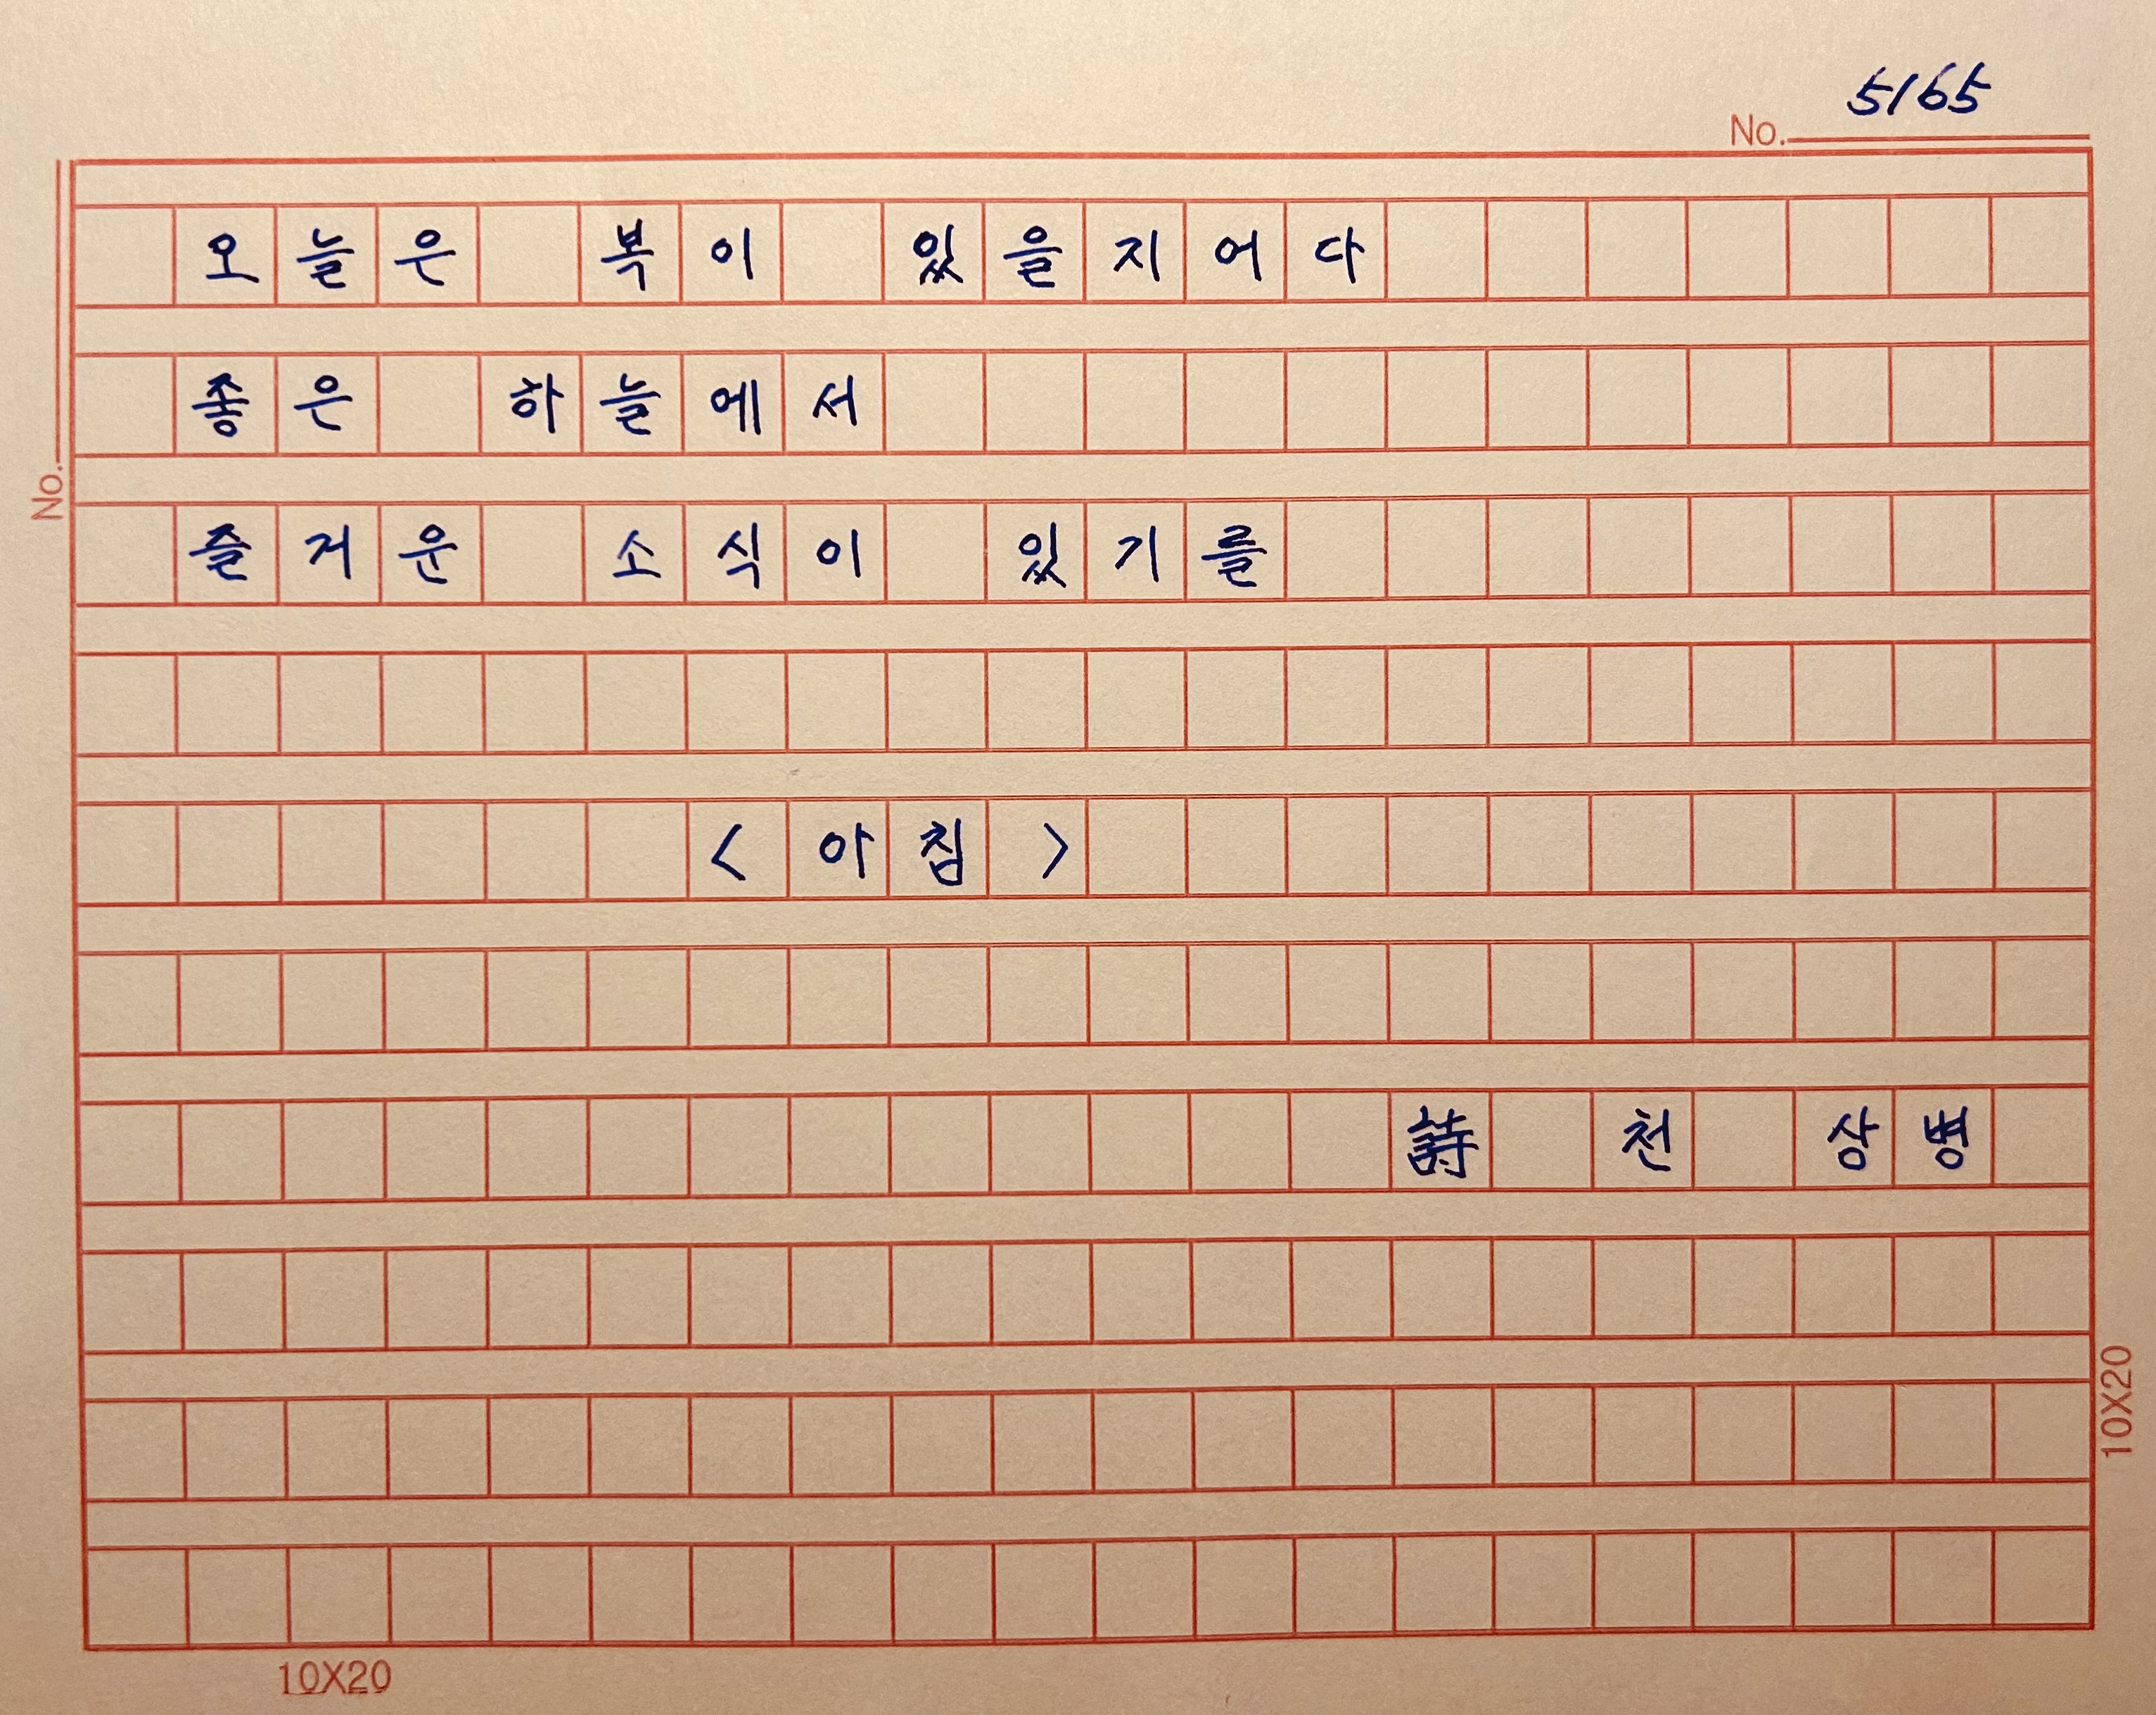 5165
No.
오늘은 복이 있을지어다
좋은 하늘에서
No.
즐거운 소식이 있기를
<아침>
詩 천 상병
10X20
10X20